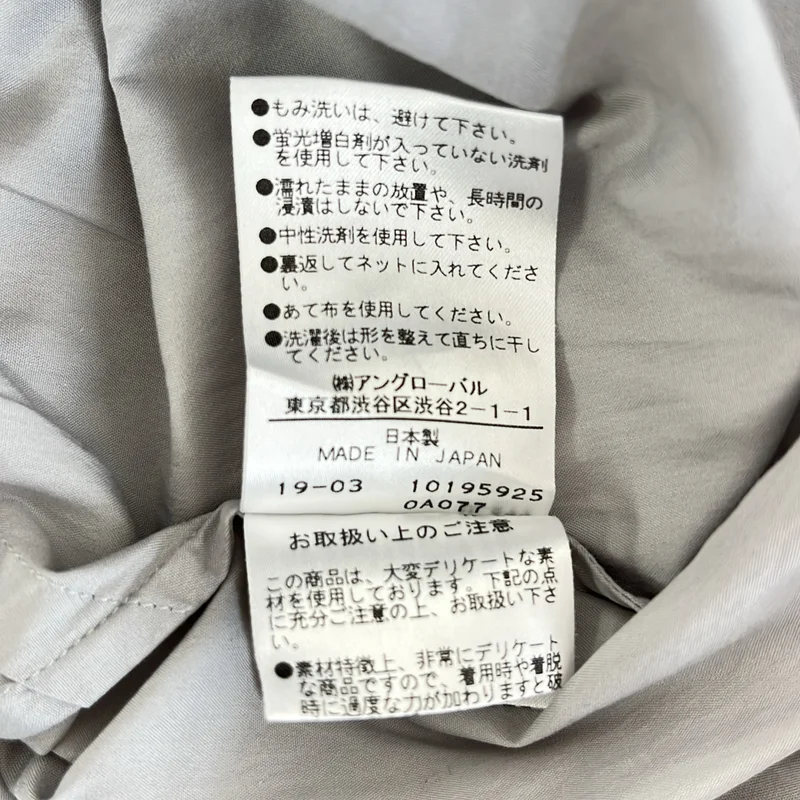 ●もみ洗いは、避けて下さい。
●蛍光増白剤が入っていない洗剤
を使用して下さい。
●濡れたままの放置や、長時間の
浸漬はしないで下さい。
●中性洗剤を使用して下さい。
●裏返してネットに入れてくださ
い。
●あて布を使用してください。
●洗濯後は形を整えて直ちに干し
てください。
㈱アングローバル
東京都渋谷区渋谷2-1-1
日本製
MADE IN JAPAN
19-03 10195925
0A077
お取扱い上のご注意
この商品は、大変デリケートな素
材を使用しております。下記の点
に充分ご注意の上、お取扱い下さ
い。
●素材特徴上、非常にデリケート
な商品ですので、着用時や着脱
時に過度な力が加わりますと破